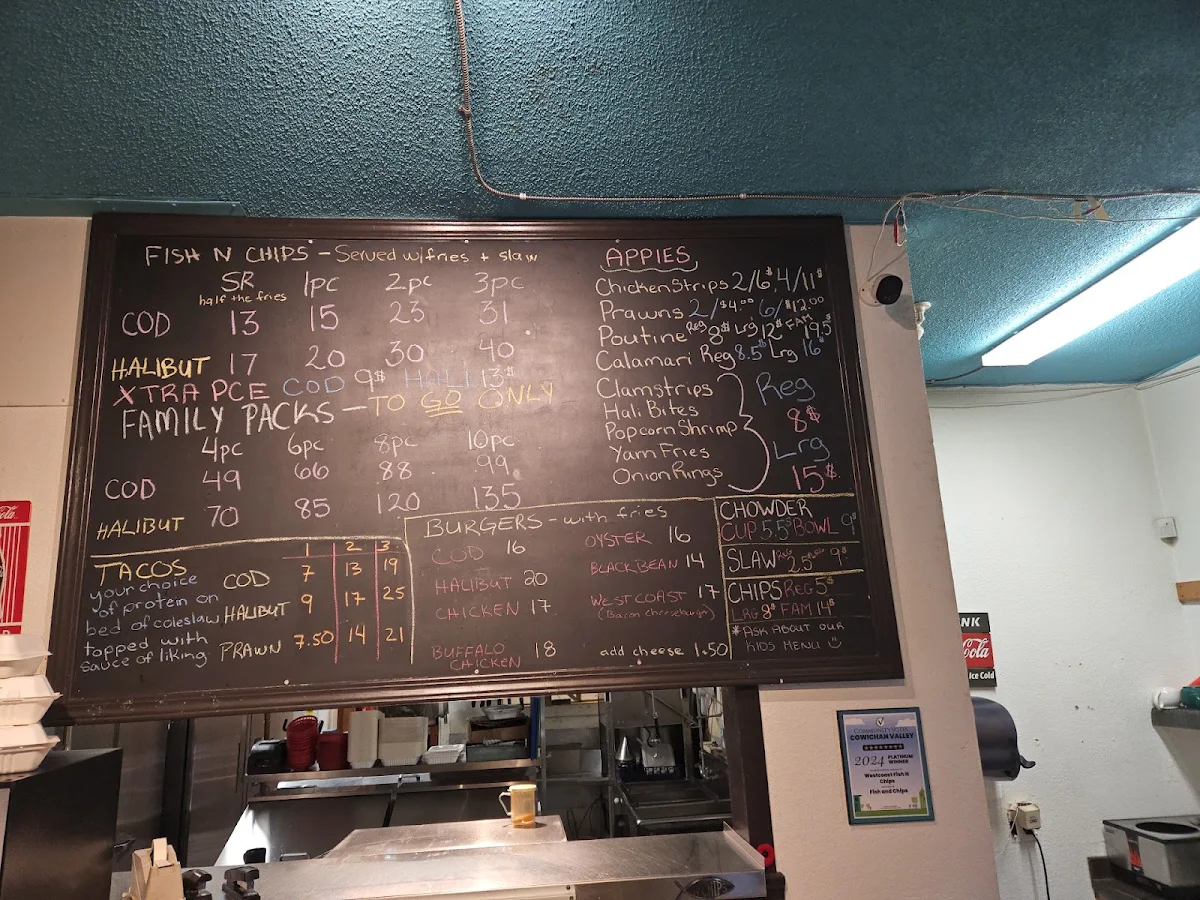 FISH N CHIPS - Served w/fries + slaw
SR 1pc 2pc 3pc
half the fries
COD 13 15 23 31
HALIBUT 17 20 30 40
XTRA PCE COD 9$ HALI 13$
FAMILY PACKS - TO GO ONLY
4pc 6pc 8pc 10pc
COD 49 66 88 99
HALIBUT 70 85 120 135
APPIES
Chicken Strips 2/6$ 4/11$
Prawns 2/$4.00 6/$12.00
Poutine Reg 8$ Lrg 12$ FAM 19.5$
Calamari Reg 8.5$ Lrg 16$
Clamstrips
Hali Bites
Popcorn Shrimp
Yam Fries
Onion Rings
Reg
8$
Lrg
15$
TACOS
your choice
of protein on
bed of coleslaw
topped with
sauce of liking
1 2 3
COD 7 13 19
HALIBUT 9 17 25
PRAWN 7.50 14 21
BURGERS - with fries
COD 16
HALIBUT 20
CHICKEN 17
BUFFALO
CHICKEN 18
OYSTER 16
BLACK BEAN 14
WEST COAST 17
(Bacon cheeseburger)
add cheese 1.50
CHOWDER
CUP 5.5$ BOWL 9$
SLAW Reg 2.5 9$
CHIPS REG 5$
LRG 8$ FAM 14$
*ASK ABOUT OUR
KIDS MENU
COWICHAN VALLEY
2024 PLATINUM
WINNER
Westcoast Fish N
Chips
Fish and Chips
NK
Cola
Ice Cold
Cola